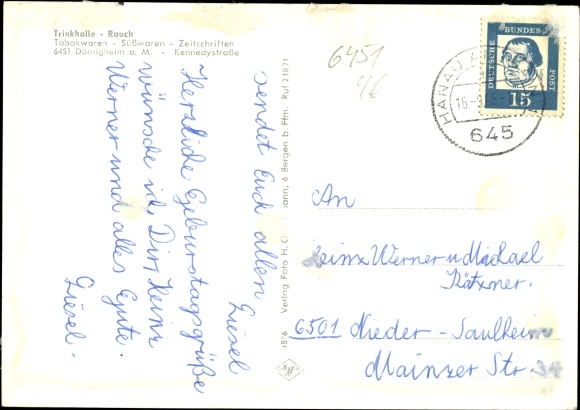 Trinkhalle - Rauch
Tabakwaren - Süßwaren - Zeitschriften
6451 Dörnigheim a. M. - Kennedystraße
6451
DEUTSCHE
BUNDES
POST
15
HANAU
645
sendet Euch allen
Liesel
Herzliche Geburtstagsgrüße
wünsche ich Dir, Heinz
Werner und alles Gute.
Liesel.
Verlag Foto H. 6 Bergen b. Ffm. Ruf 21871
An
Heinz Werner u Michael
6501 Nieder-Saulheim
Mainzer Str.